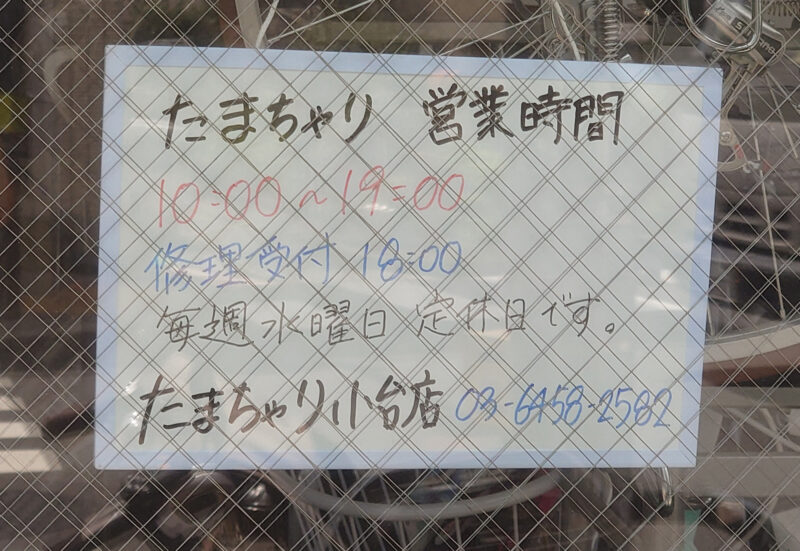 たまちゃり 営業時間
10:00~19:00
修理受付 18:00
毎週水曜日 定休日です。
たまちゃり小台店 03-6458-2582